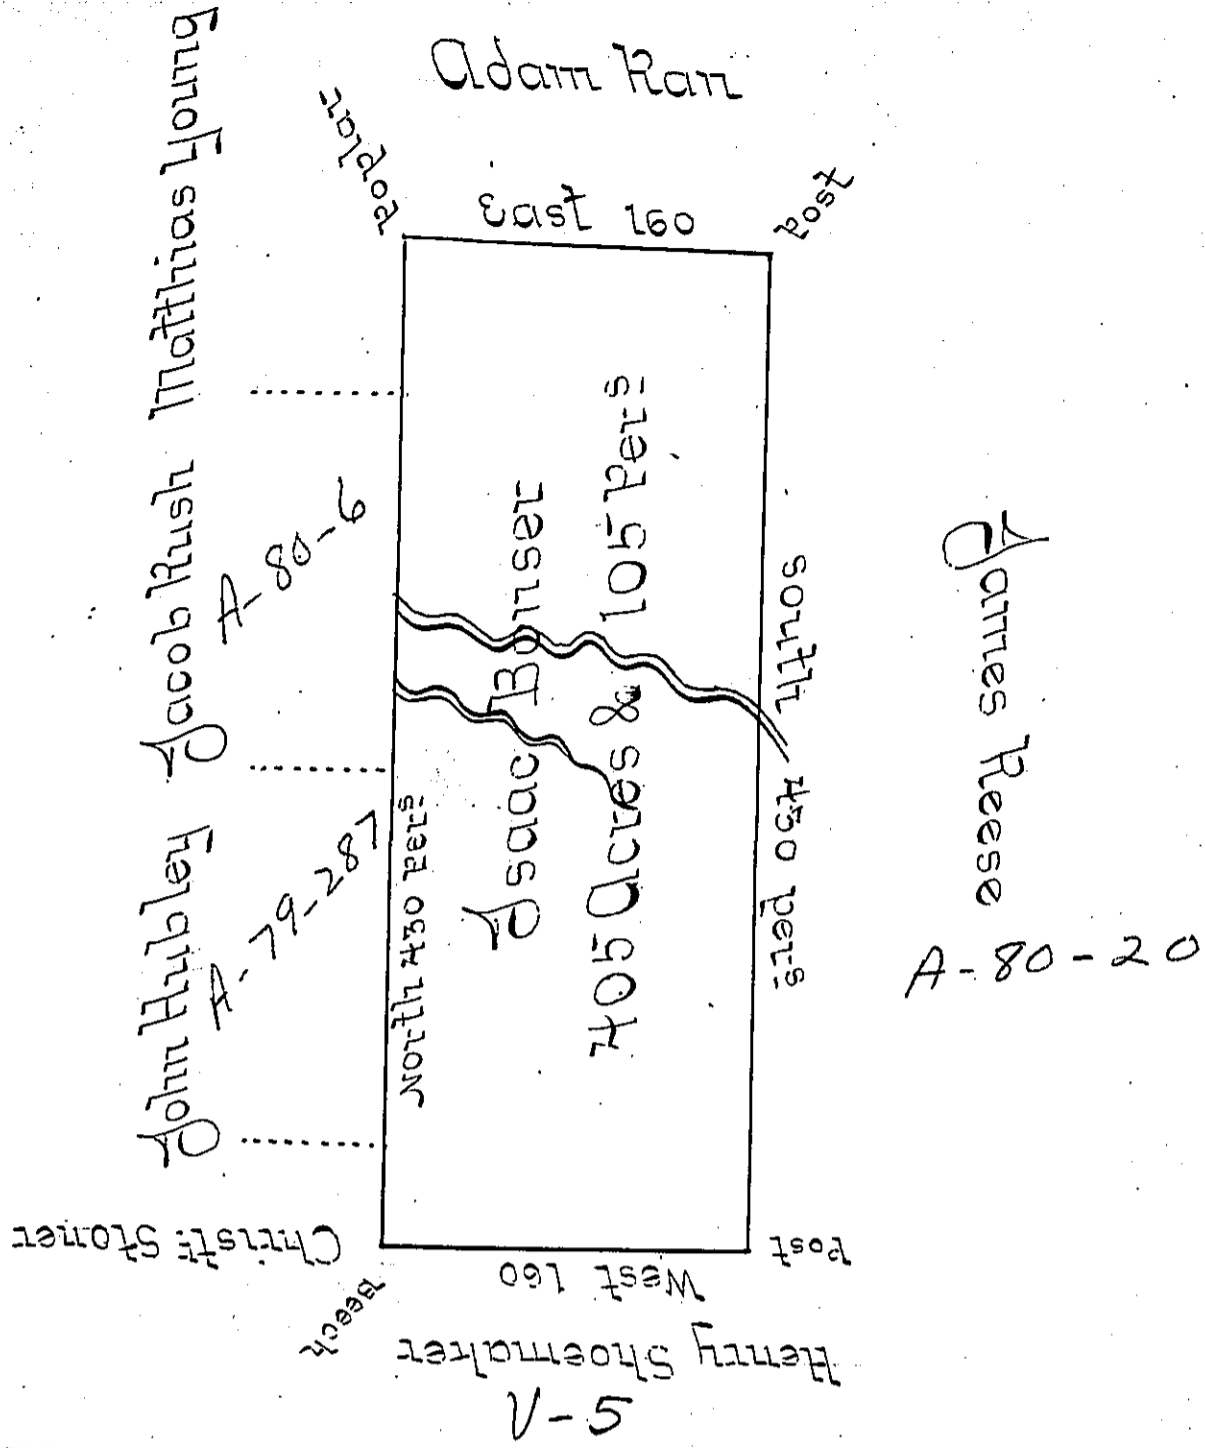 Adam Ran
Poplar
East 160
Post
Matthias Young
Jacob Rush
A-80-6
John Hubley
A-79-287
North 430 Pers
Isaac Bonser
405 Acres & 105 Pers
South 430 pers
James Reese
A-80-20
Christn: Stoner
Beech
West 160
Post
Henry Shoemaker
V-5